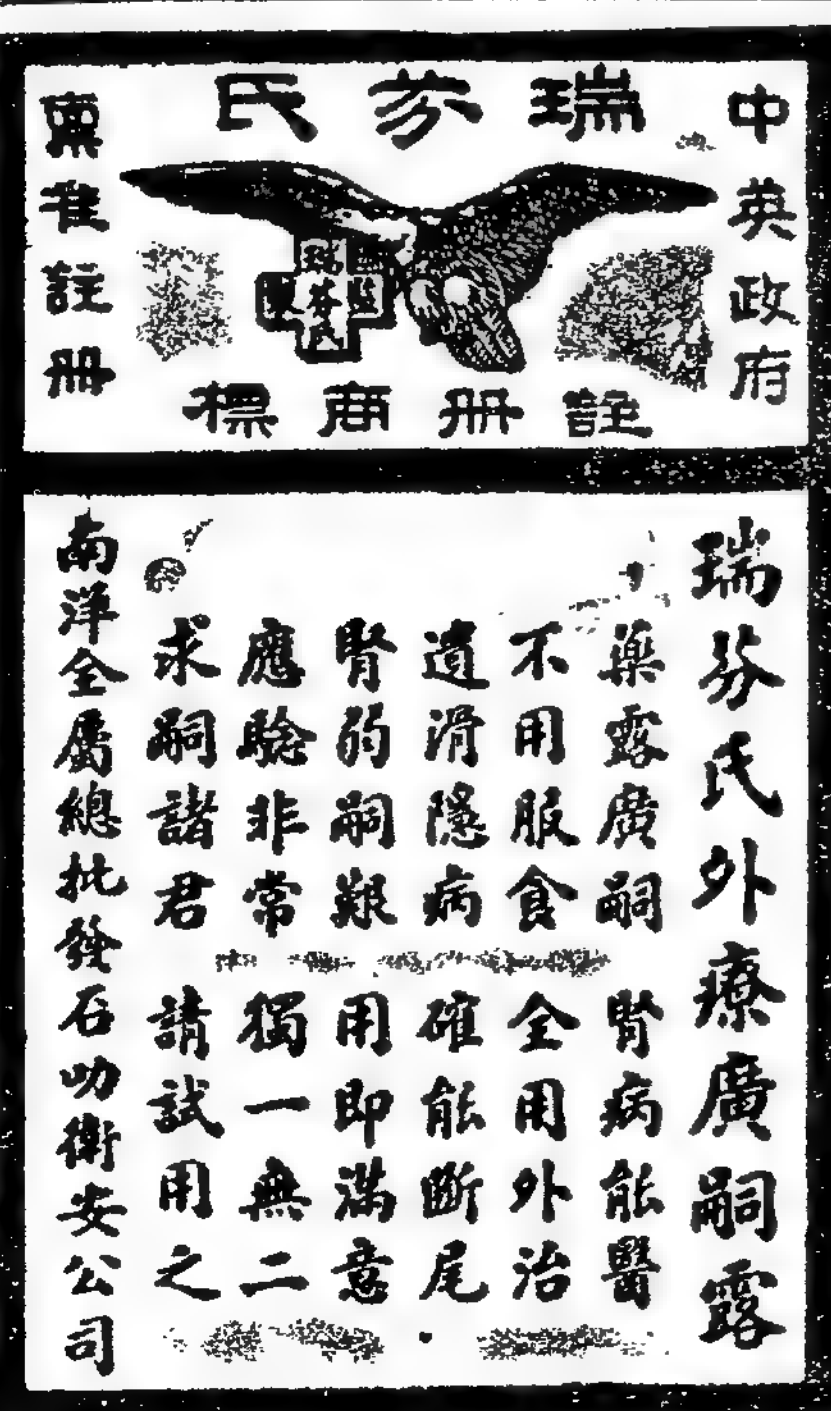 中英政府
瑞芬氏
稟准註冊
瑞芬氏
註冊商標
瑞芬氏外療廣嗣露
藥露廣嗣 腎病能醫
不用服食 全用外治
遺滑隱病 確能斷尾
腎弱嗣艱 用即滿意
應騐非常 獨一無二
求嗣諸君 請試用之
南洋全屬總批發石叻衛安公司